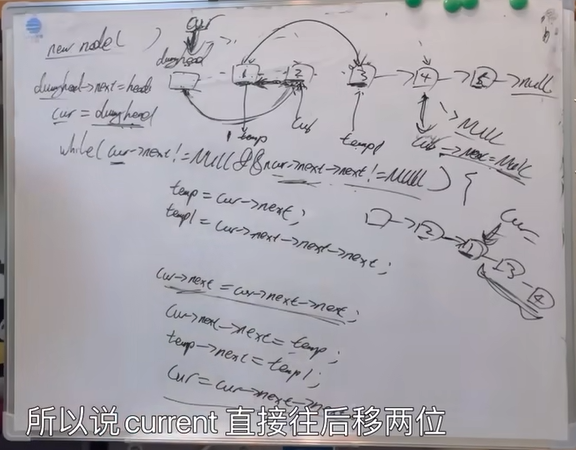 cur
new node( )
dummyhead
1 2 3 4 5 null
dummyhead->next=head
cur = dummyhead
temp cur temp1 cur->next=NULL
->NULL
while(cur->next!=NULL&&cur->next->next!=NULL){
cur
temp=cur->next;
2 1 3 4
temp1=cur->next->next->next;
cur->next=cur->next->next;
cur->next->next=temp;
temp->next=temp1;
cur=cur->next->next
所以说current 直接往后移两位